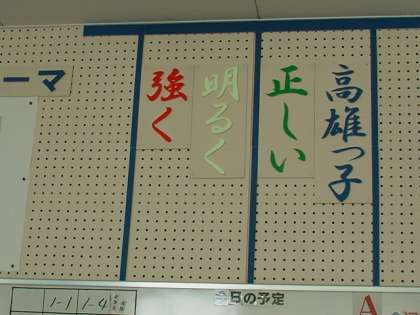 高雄っ子
正しい
明るく
強く
ーマ
今日の予定
1-1
1-4
A